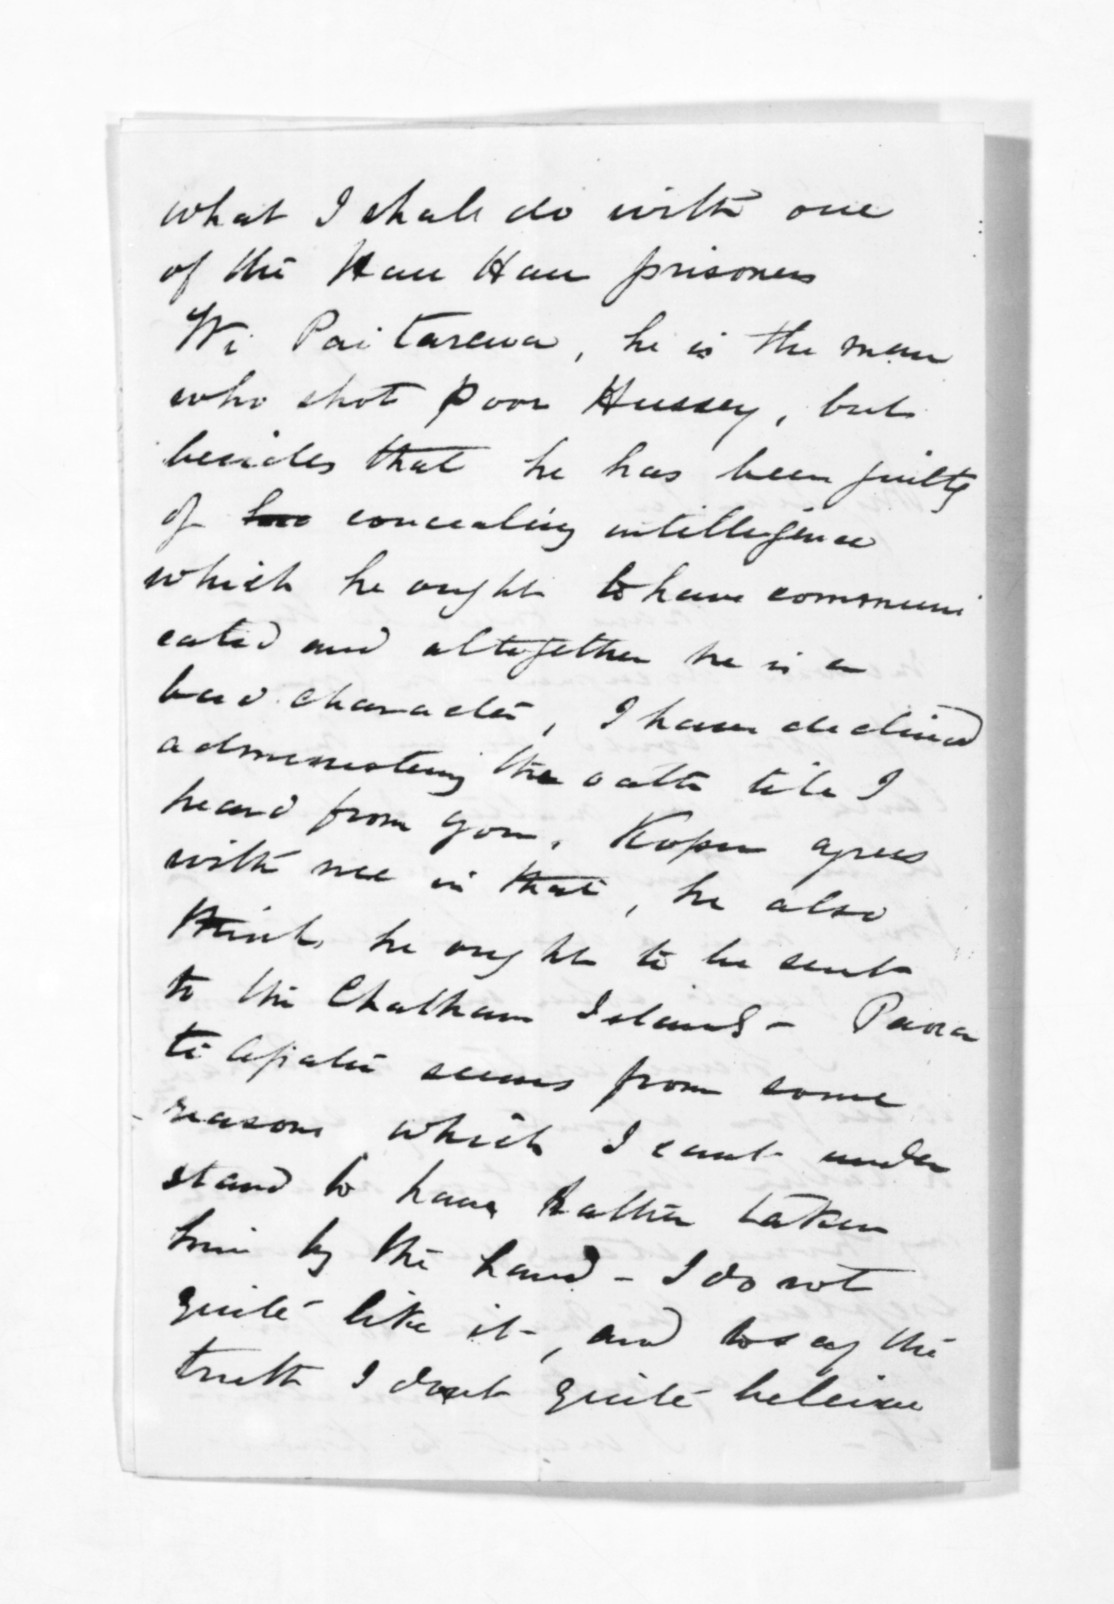 what I shall do with one
of the Hau Hau prisoners
Wi Paitarewa, he is the man
who shot poor Hussey, but
besides that he has been guilty
of concealing intelligence
which he ought to have communi
cated and altogether he is a
bad character, I have declined
administering the oath till I
heard from you, Kopu agrees
with me in that, he also
thinks he ought to be sent
to the Chatham Islands - Paora
te Apatu seems from some
reasons which I cant under
stand to have rather taken
him by the hand - I do not
quite like it, and to say the
truth I dont quite beleive